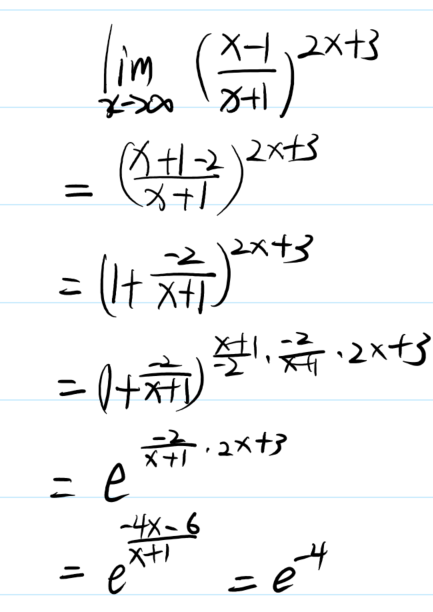 lim x→∞ ((x-1)/(x+1))^(2x+3)
= ((x+1-2)/(x+1))^(2x+3)
= (1+(-2)/(x+1))^(2x+3)
= (1+(-2)/(x+1))^((x+1)/(-2) · (-2)/(x+1) · 2x+3)
= e^((-2)/(x+1) · 2x+3)
= e^((-4x-6)/(x+1)) = e^(-4)